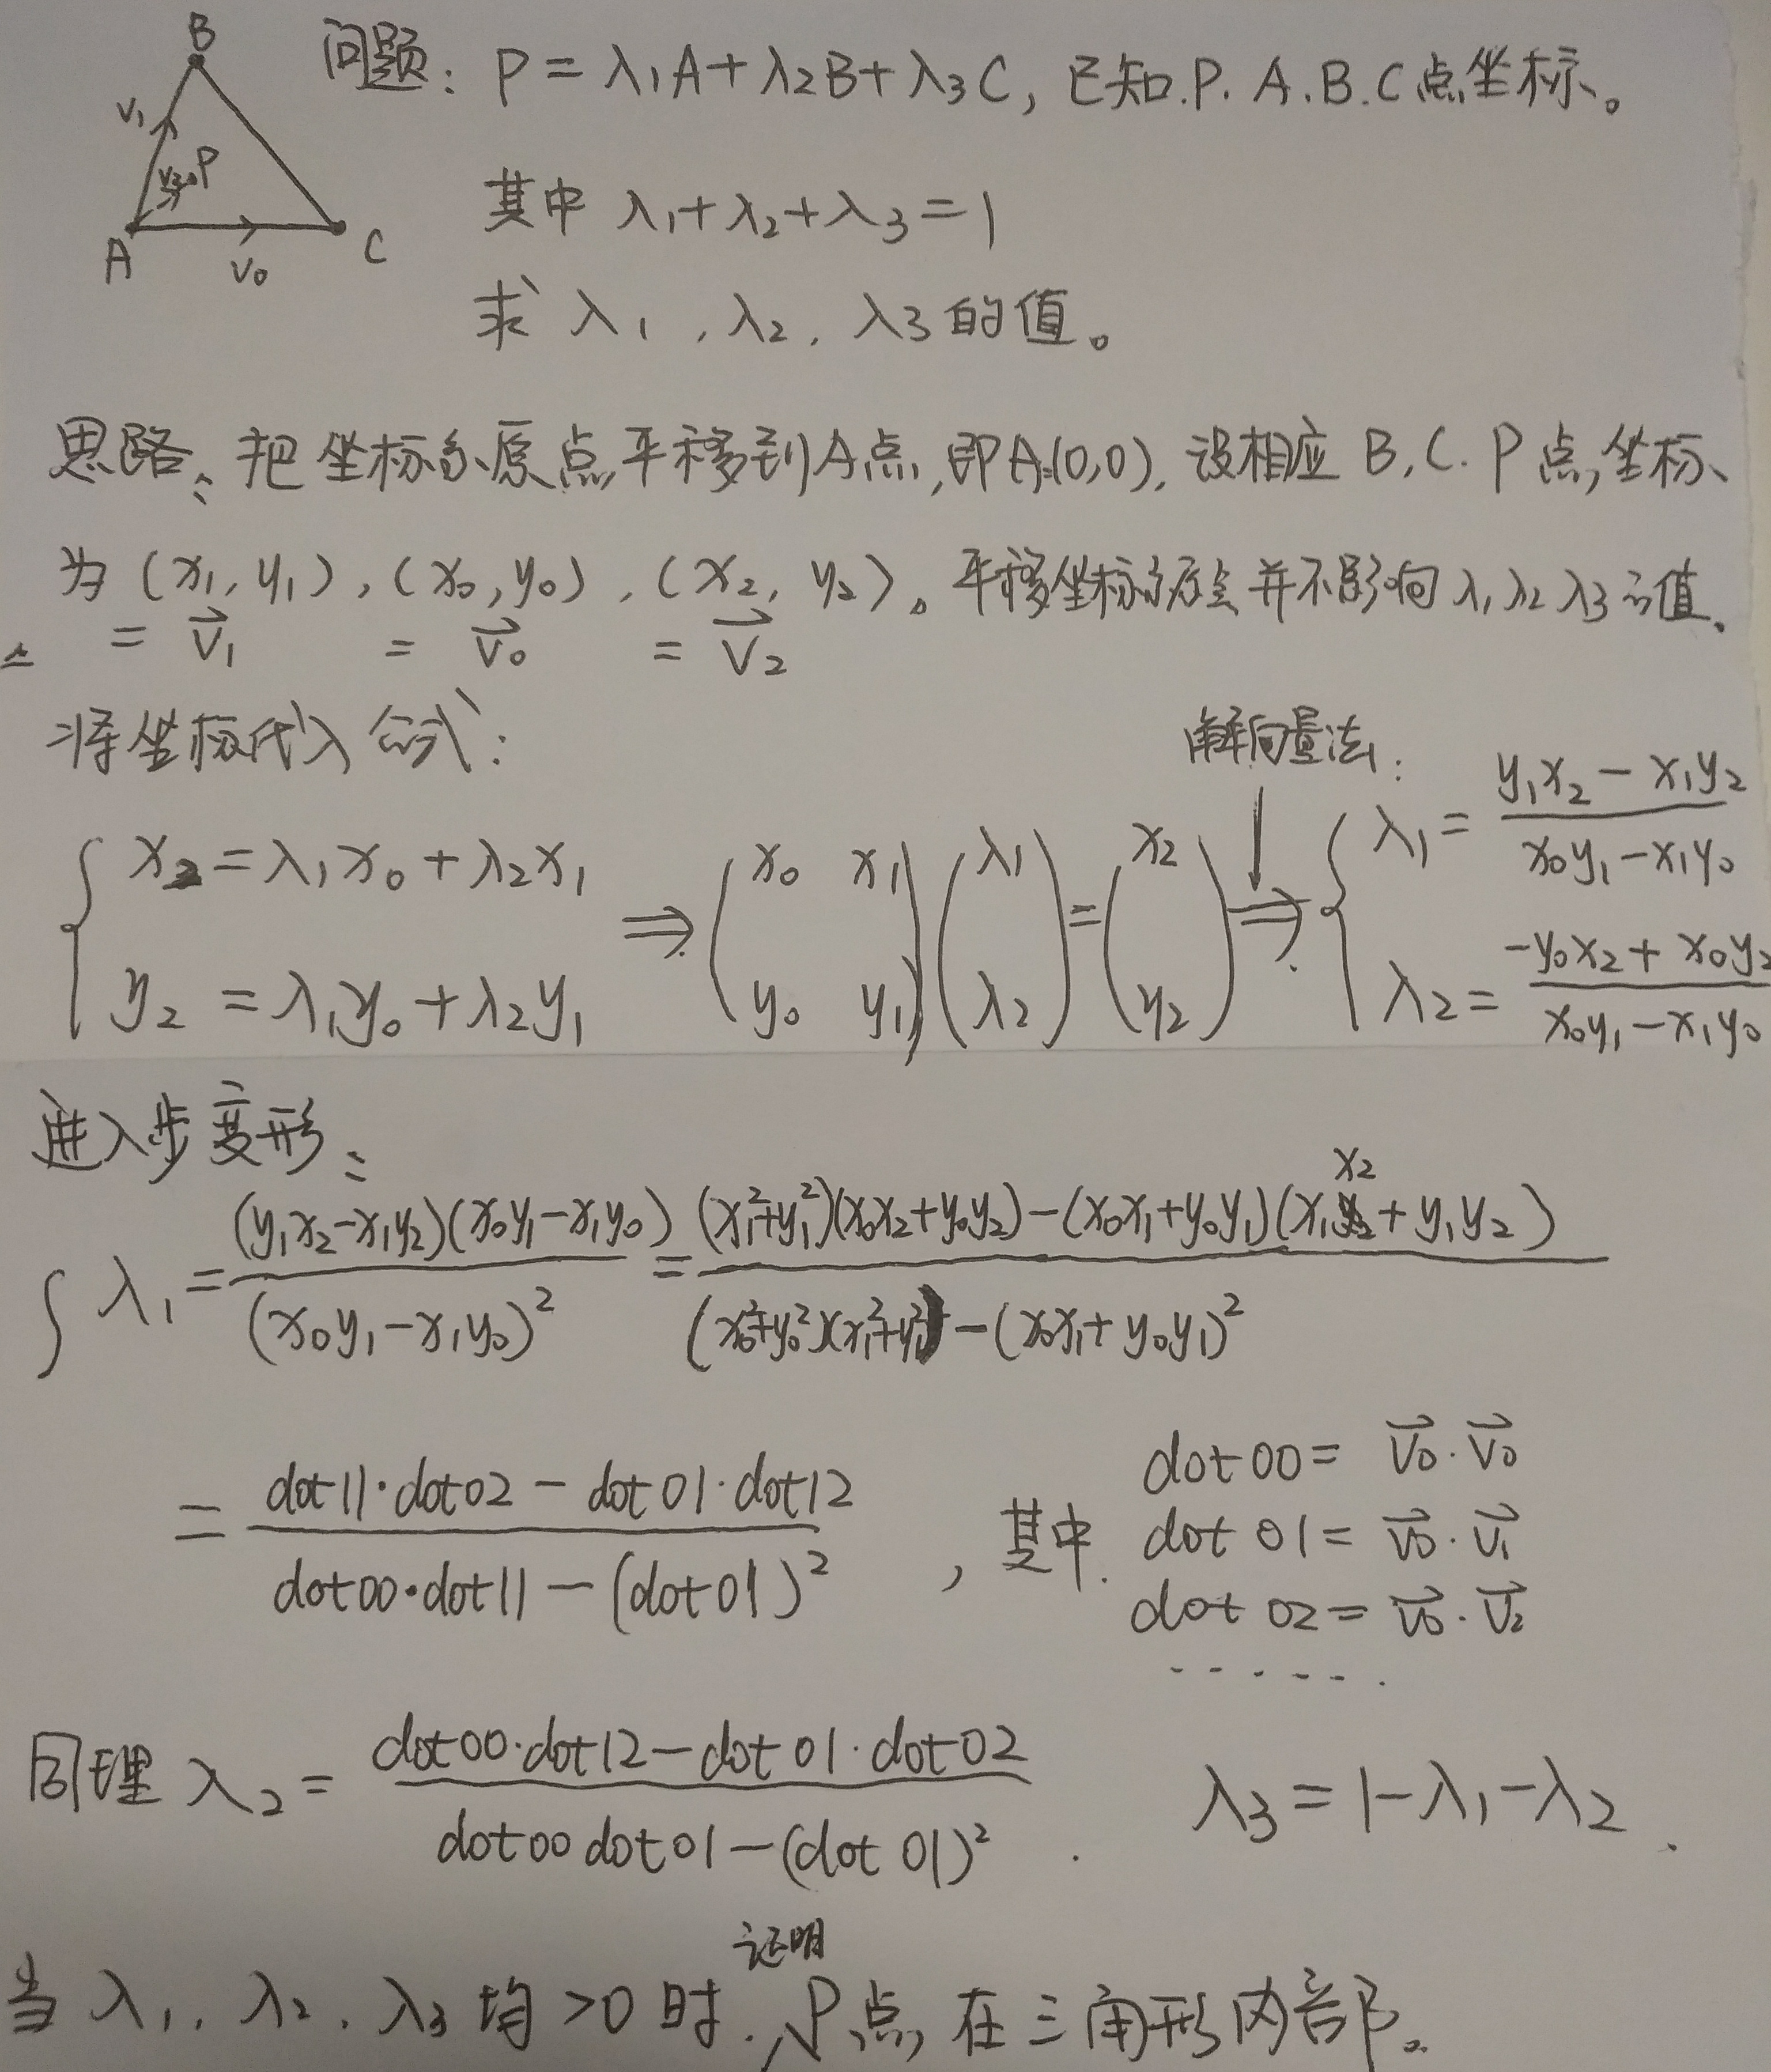 B
问题: P = λ₁A + λ₂B + λ₃C, 已知.P. A.B.C点坐标。
V₁
V₂ P
A
V₀
C
其中 λ₁+λ₂+λ₃=1
求 λ₁, λ₂, λ₃的值。
思路: 把坐标系原点平移到A点,即A(0,0), 设相应 B,C.P点坐标
为 (x₁, y₁), (x₀, y₀), (x₂, y₂)。平移坐标系原点并不影响λ₁λ₂λ₃的值。
= V⃗₁ = V⃗₀ = V⃗₂
将坐标代入公式:
解向量法:
{ x₂ = λ₁x₀ + λ₂x₁
y₂ = λ₁y₀ + λ₂y₁
⇒ (x₀ x₁ y₀ y₁)(λ₁ λ₂) = (x₂ y₂) ⇒
{ λ₁ = (y₁x₂ − x₁y₂) / (x₀y₁ − x₁y₀)
λ₂ = (−y₀x₂ + x₀y₂) / (x₀y₁ − x₁y₀)
进入步变形:
{ λ₁ = (y₁x₂−x₁y₂)(x₀y₁−x₁y₀) / (x₀y₁−x₁y₀)² = (x₁²+y₁²)(x₀x₂+y₀y₂)−(x₀x₁+y₀y₁)(x₁x₂+y₁y₂) / (x₀²+y₀²)(x₁²+y₁²)−(x₀x₁+y₀y₁)²
= dot11·dot02 − dot01·dot12 / dot00·dot11 − (dot01)² , 其中.
dot00 = V⃗₀·V⃗₀
dot01 = V⃗₀·V⃗₁
dot02 = V⃗₀·V⃗₂
......
同理 λ₂ = dot00·dot12 − dot01·dot02 / dot00dot01 − (dot01)² . λ₃ = 1−λ₁−λ₂.
当 λ₁, λ₂, λ₃均>0时.证明P点在三角形内部。